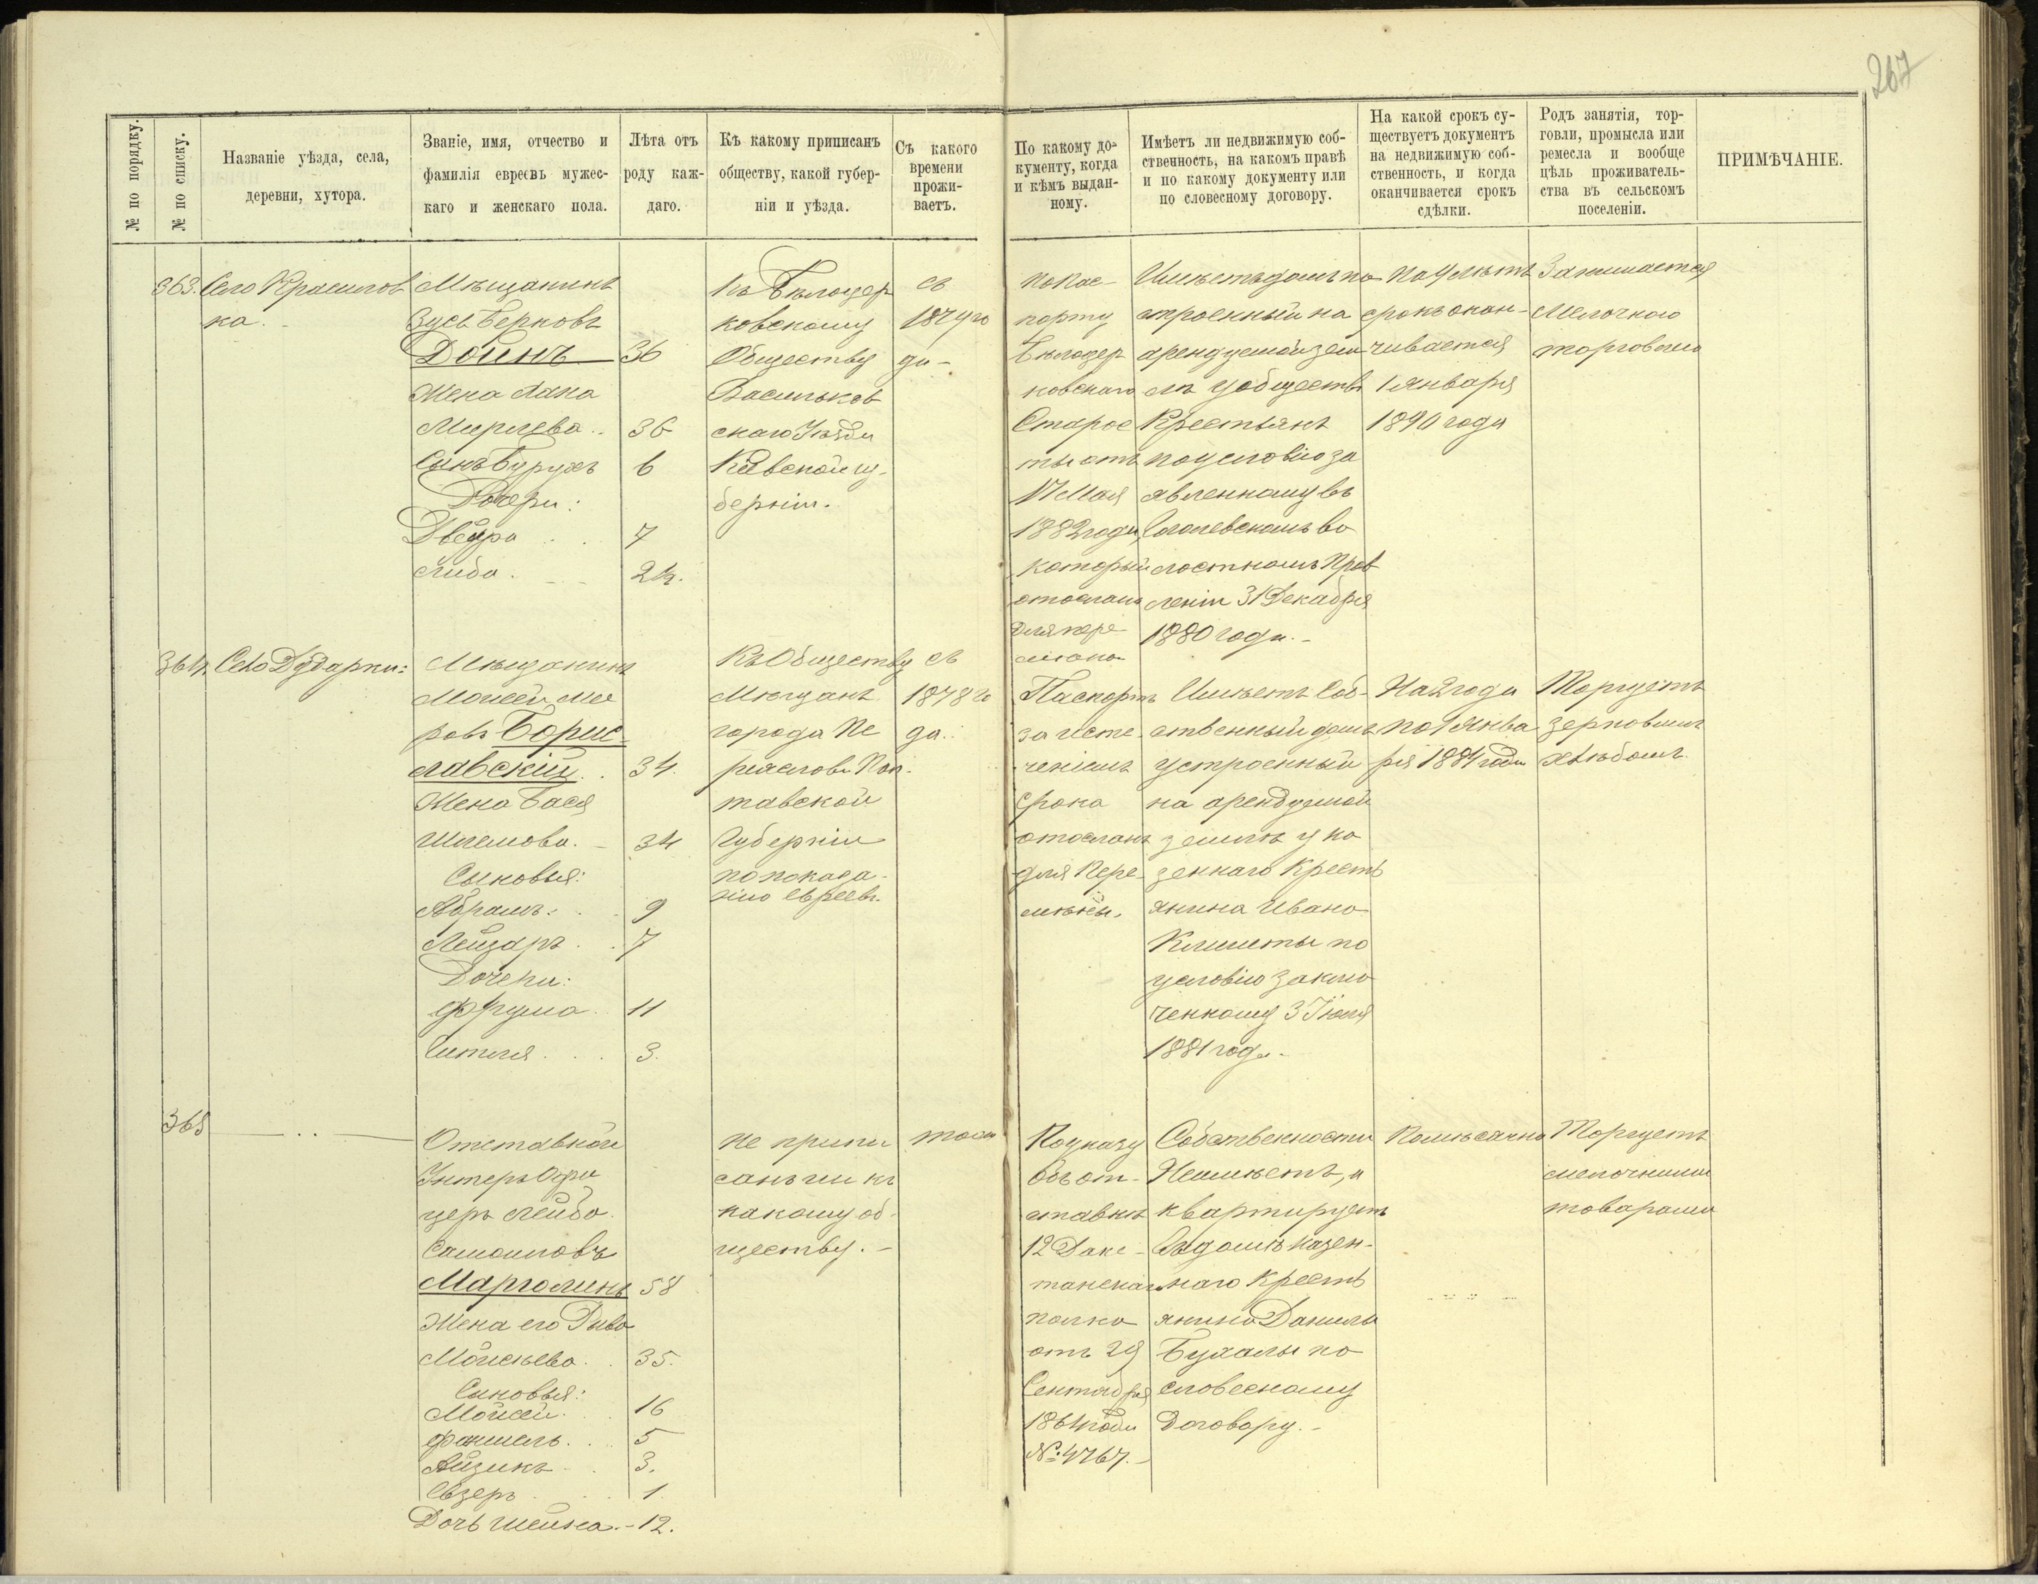 267
№ по порядку.
№ по списку.
Названіе уѣзда, села,
деревни, хутора.
Званіе, имя, отчество и
фамилія евреевъ мужес-
каго и женскаго пола.
Лѣта отъ
роду каж-
даго.
Къ какому приписанъ
обществу, какой губер-
ніи и уѣзда.
Съ какого
времени
прожи-
ваетъ.
По какому до-
кументу, когда
и кѣмъ выдан-
ному.
Имѣетъ ли недвижимую соб-
ственность, на какомъ правѣ
и по какому документу или
по словесному договору.
На какой срокъ су-
ществуетъ документъ
на недвижимую соб-
ственность, и когда
оканчивается срокъ
сдѣлки.
Родъ занятія, тор-
говли, промысла или
ремесла и вообще
цѣль проживатель-
ства въ сельскомъ
поселеніи.
ПРИМѢЧАНІЕ.
363.
Село Красилов
ка.
Мѣщанинъ
Зусь Берковъ
Доинъ 36
Жена
Мирлева 36
Сынъ Бурухъ 6
Дочери:
Двейра 7
Либа 2½.
Къ Бѣлоцер
ковскому
Обществу
Васильков
скаго Уѣзда
Кіевской гу-
берніи.
съ
1879 го
да-
по пас-
порту
Бѣлоцер
ковскаго
Старос
ты отъ
17 Мая
1882 года,
который
отосланъ
для пере
мѣны
Имѣетъ домъ по
строенный на
арендуемой зем
лѣ у обществ
Крестьянъ
по условію за
явленному въ
Гоголевскомъ во
лостномъ Прав
леніи 31 Декабря
1880 года.-
по 9 лѣтъ
срокъ окан-
чивается
1 Января
1890 года
Занимается
Мелочною
торговлею
364.
Село Дударки:
Мѣщанинъ
Моисей Ме
ровъ Борис-
лавскій 34.
Жена Бася
Шлемова. 34
Сыновья:
Абрамъ 9
Лейзаръ 7
Дочери:
Фрума 11
Гитля 3.
Къ Обществу
Мѣщанъ
города Пе
реяслова Пол-
тавской
Губерніи
по показа-
нію евреевъ.
съ
1878 го
да.
Паспортъ
за исте-
ченіемъ
срока
отосланъ
для пере-
мѣны.
Имѣетъ Соб-
ственный домъ
устроенный
на арендуемой
землѣ у ка
зеннаго Кресть
янина Ивана
Климеты по
условію заклю
ченному 3 Іюля
1881 года.
На 2 года
по 1 Янва
ря 1884 года
Торгуетъ
зерновымъ
хлѣбомъ
365
Отставной
Унтеръ Офи
церъ Лейба
Самоиловъ
Марголинъ 58
Жена его Рива
Мойсѣева 35.
Сыновья:
Мойсей. 16
Файвель. 5
Айзикъ 3.
1
Дочь Шейна. - 12.
Не припи
санъ ни къ
какому об-
ществу.-
тоже
По указу
объ от-
ставкѣ
12 Даге-
станскаго
полка
отъ 29
Сентября
1864 года
№ 4767.-
Собственности
Не имѣетъ, а
квартируетъ
въ домѣ казен-
наго Кресть
янина Данила
Бухалы по
словесному
Договору.-
Помѣсячно
Торгуетъ
мелочными
товарами